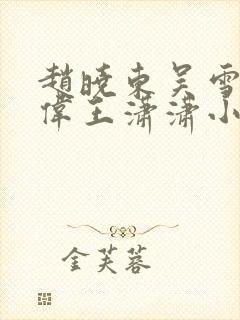 趙曉東吳雪
偉王瀟瀟小
金芙蓉